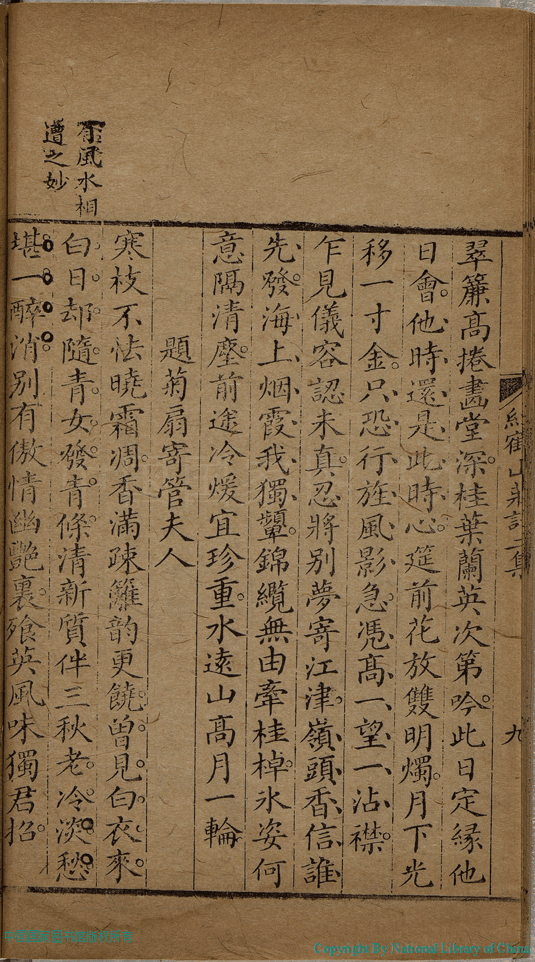 翠簾高捲畵堂深桂葉蘭英次第吟此日定緣他
日會他時還是此時心筵前花放雙明燭月下光
移一寸金只恐行旌風影急凴高一望一沾襟
乍見儀容認未真忍將別夢寄江津嶺頭香信誰
先發海上烟霞我獨顰錦纜無由牽桂棹氷姿何
意隔清塵前途冷煖宜珍重水遠山高月一輪
題菊扇寄管夫人
寒枝不怯曉霜凋香滿疎籬韵更饒曾見白衣來
白日却隨青女發青條清新質伴三秋老冷淡愁
堪一醉消別有傲情幽艷裏飱英風味獨君招
有風水相
遭之妙
紅蕉山集詩二集
九
Copyright By National Library of China